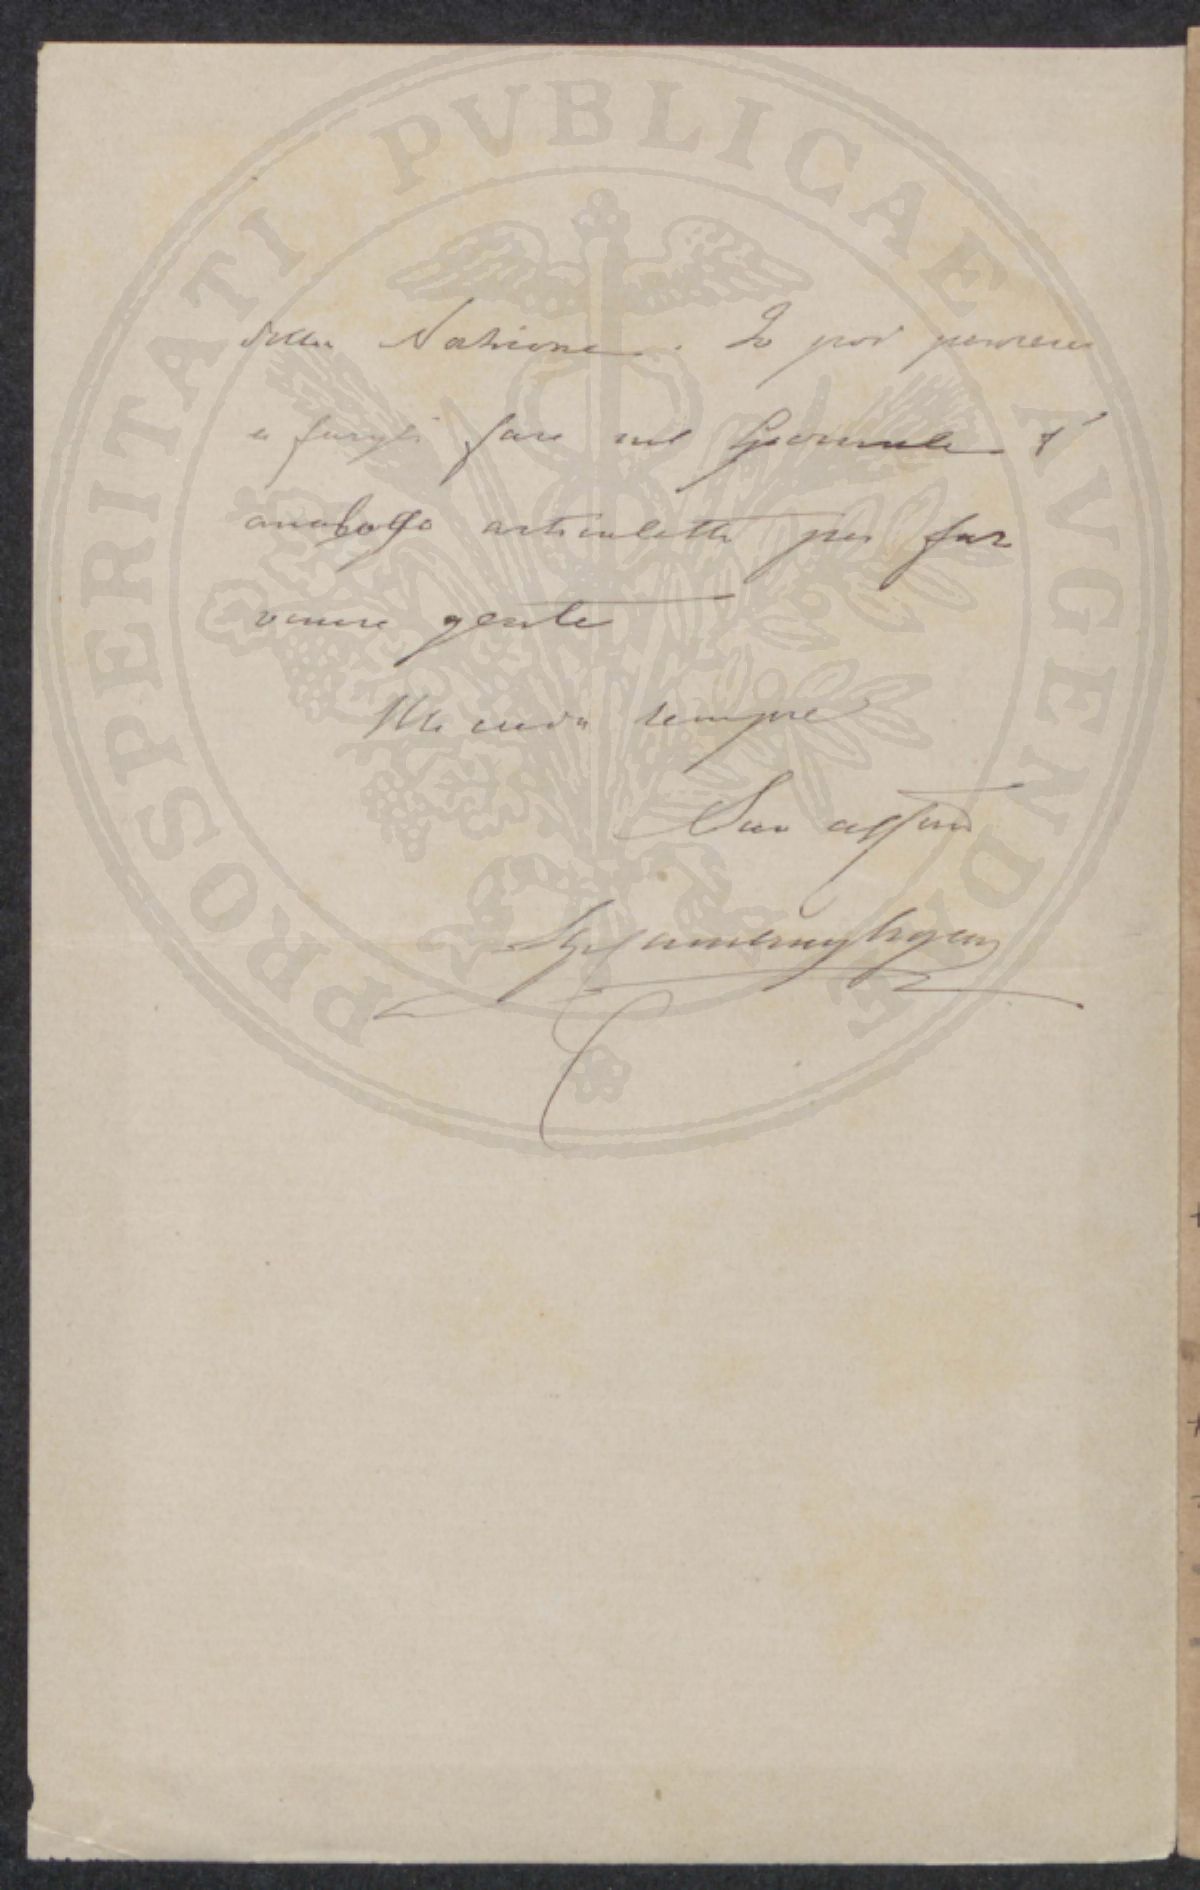 PROSPERITATI PVBLICAE AVGENDAE
della Nazione. Io poi penserei
a fargli fare nel Giornale l'
analogo articoletto per far
venire gente
Mi creda sempre
Suo affmo